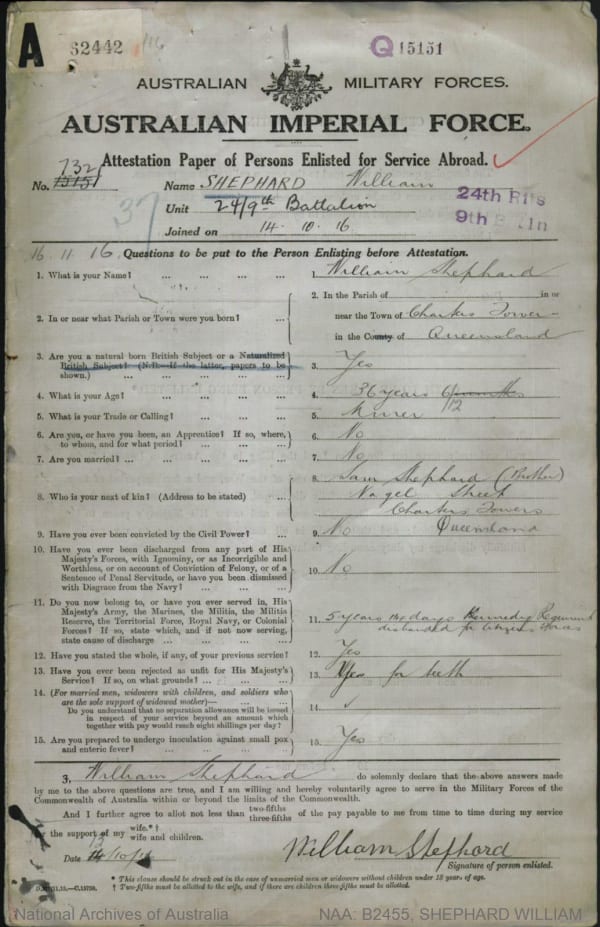 A
S2442
Q 15151
AUSTRALIAN MILITARY FORCES.
AUSTRALIAN IMPERIAL FORCE.
Attestation Paper of Persons Enlisted for Service Abroad.
732
No. 15151 Name SHEPHARD William
37 Unit 24/9th Battalion
24th Rfts
9th
Joined on 14. 10. 16
16 11 16 Questions to be put to the Person Enlisting before Attestation.
1. What is your Name? ... ... ... ... 1. William Shephard
2. In or near what Parish or Town were you born? ... 2. In the Parish of in or
near the Town of Charters Towers
in the County of Queensland
3. Are you a natural born British Subject or a Naturalized
British Subject? (N.B.—If the latter, papers to be
shown.) ... ... ... ... ... 3. Yes
4. What is your Age? ... ... ... ... 4. 36 years 6/12 months
5. What is your Trade or Calling? ... ... ... 5. Miner
6. Are you, or have you been, an Apprentice? If so, where,
to whom, and for what period? ... ... ... 6. No
7. Are you married? ... ... ... ... ... 7. No
8. Who is your next of kin? (Address to be stated) ... 8. Sam Shephard (Brother)
Nagel Street
Charters Towers
Queensland
9. Have you ever been convicted by the Civil Power? ... 9. No
10. Have you ever been discharged from any part of His
Majesty's Forces, with Ignominy, or as Incorrigible and
Worthless, or on account of Conviction of Felony, or of a
Sentence of Penal Servitude, or have you been dismissed
with Disgrace from the Navy? ... ... ... 10. No
11. Do you now belong to, or have you ever served in, His
Majesty's Army, the Marines, the Militia, the Militia
Reserve, the Territorial Force, Royal Navy, or Colonial
Forces? If so, state which, and if not now serving,
state cause of discharge ... ... ... 11. 5 years days Kennedy Regiment
disbanded for citizen forces
12. Have you stated the whole, if any, of your previous service? 12. Yes
13. Have you ever been rejected as unfit for His Majesty's
Service? If so, on what grounds? ... ... ... 13. Yes for teeth
14. (For married men, widowers with children, and soldiers who
are the sole support of widowed mother)—
Do you understand that no separation allowance will be issued
in respect of your service beyond an amount which
together with pay would reach eight shillings per day? 14.
15. Are you prepared to undergo inoculation against small pox
and enteric fever? ... ... ... ... 15. Yes
I, William Shephard do solemnly declare that the above answers made
by me to the above questions are true, and I am willing and hereby voluntarily agree to serve in the Military Forces of the
Commonwealth of Australia within or beyond the limits of the Commonwealth.
And I further agree to allot not less than two-fifths three-fifths of the pay payable to me from time to time during my service
for the support of my wife.*† wife and children.
Date 14/10/16 William Shephard
Signature of person enlisted.
* This clause should be struck out in the case of unmarried men or widowers without children under 18 years of age.
† Two-fifths must be allotted to the wife, and if there are children three-fifths must be allotted.
National Archives of Australia NAA: B2455, SHEPHARD WILLIAM